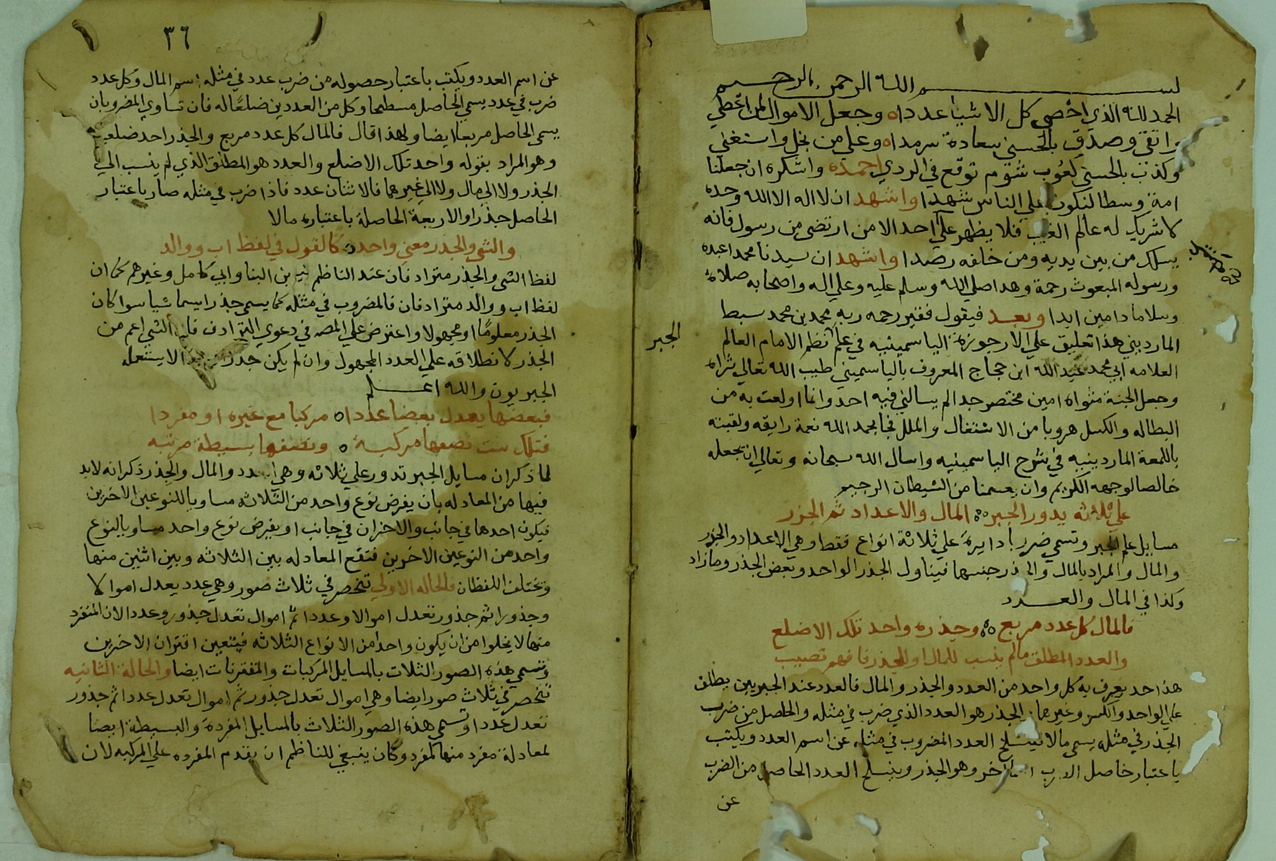 بسم الله الرحمن الرحيم
الحمد لله الذي احصي كل الاشيا عددا ه وجعل الاموال لمن اعطي
واتقي وصدق بالحسني سعادة سرمدا ه وعلي من بخل واستغني
وكذب بالحسني كعوب شؤم توقع في الردي احمده واشكره ان جعلنا
امة وسطا لنكون علي الناس شهدا واشهد ان لا اله الا الله وحده
لا شريك له عالم الغيب فلا يظهر علي احد الا من ارتضي من رسول فانه
يسلك من بين يديه ومن خلفه رصدا واشهد ان سيدنا محمدا عبده
ورسوله المبعوث رحمة وهدا صلي الله وسلم عليه وعلي اله واصحابه صلاة
وسلاما دامين ابدا وبعد فيقول فقير رحمه ربه محمد بن محمد سبط
المارديني هذا تعليق علي الارجوزة الياسمينيه في علم نظم الامام العالم
الجبر
العلامه ابي محمد عبد الله ابن حجاج المعروف بالياسميني طيب الله تعالي ثراه
وجعل الجنة مثواه امين مختصر جدا لم يسالني فيه احد وانما اولعت به من
البطاله والكسل هروبا من الاشتغال والملل فجا بحمد الله نعمة رايقه ولقبته
باللمعة الماردينيه في شرح الياسمينيه واسال الله سبحانه وتعالي ان يجعله
خالصا لوجهه الكريم وان يعصمنا من الشيطان الرجيم
علي ثلاثه يدور الجبر ه المال والاعداد ثم الجزر
مسايل علم الجبر وتسمي ضروبا دايرة علي ثلاثة انواع فقط وهي الاعداد والجزر
والمال والمراد بالمال والجذر جنسها فيتناول الجذر الواحد وبعض الجذر وما زاد
وكذا في المال والعدد
فالمال كل عدد مربع ه وجذره واحد تلك الاضلع
والعدد المطلق ما لم ينسب للمال او للجذر فافهم تصيب
هذا حد يعرف به كل واحد من العدد والجذر والمال فالعدد عند الجبريين يطلق
علي الواحد والكسر وغيرهما والجذر هو العدد الذي ضرب في مثله والحاصل من ضرب
الجذر في مثله يسمي مالا فينسلخ العدد المضروب في مثله عن اسم العدد ويكتب
باعتبار حاصل الضرب اسما اخر وهو الجذر وينسلخ العدد الحاصل من الضرب
عن
٣٦
عن اسم العدد ويكتب باعتبار حصوله من ضرب عدد في مثله اسم المال وكل عدد
ضرب في عدد يسمي الحاصل مسطحا وكل من العددين ضلعا له فان تساوي المضروبان
يسمي الحاصل مربعا ايضا ولهذا قال فالمال كل عدد مربع والجذر احد ضلعيه
وهو المراد بقوله واحد تلك الاضلع والعدد هو المطلق الذي لم ينسب الي
الجذر ولا الي المال ولا الي غيرهما فالاثنان عدد فاذا ضرب في مثله صار باعتبار
الحاصل جذرا والاربعة الحاصلة باعتباره مالا
والشي والجذر معني واحد ه كالقول في لفظ اب ووالد
لفظ الشي والجذر مترادفان عند الناظم بن البنا وابي كامل وغيرهم كما ان
لفظ اب ووالد مترادفان فالمضروب في مثله كما يسمي جذرا يسما شيا سوا كان
الجذر معلوما او مجهولا واعترض علي المصه في دعوي الترادف فان الشي اعم من
الجذر لانطلاقه علي العدد المجهول وان لم يكن جذرا الاستعمله
الجبريون والله اعلم
فبعضها يعدل بعضا عددا ه مركبا مع غيره او مفردا
فتلك ست نصفها مركبة ه ونصفها بسيطة مرتبه
لما ذكر ان مسايل الجبر تدور علي ثلاثه وهي العدد والمال والجذر ذكر انه لابد
فيها من المعادله بان يفرض نوع واحد من الثلاثه مساويا للنوعين الاخرين
فيكون احدها في جانب والاخران في جانب او يفرض نوع واحد مساويا لنوع
واحد من النوعين الاخرين فتقع المعادله بين الثلاثه وبين اثنين منها
ويختلف اللفظان فالحاله الاولي تنحصر في ثلاث صور وهي عدد يعدل اموالا
وجذورا ثم جذور تعدل اموالا وعددا ثم اموال تعدل جذور وعددا لان المنفرد
منها لا يخلوا من ان يكون واحدا من الانواع الثلاثه فيتعين اقتران الاخرين
وتسمي هذه الصور الثلاث بالمسايل المركبات والمقترنات ايضا والحالة الثانيه
تنحصر في ثلاث صور ايضا وهي اموال تعدل جذور ثم اموال تعدل عددا ثم جذور
تعدل عددا وتسمي هذه الصور الثلاث بالمسايل المفردة والبسيطة ايضا
لمعادلة مفرد منها لمفرد وكان ينبغي للناظم ان يقدم المفرده علي المركبه لان